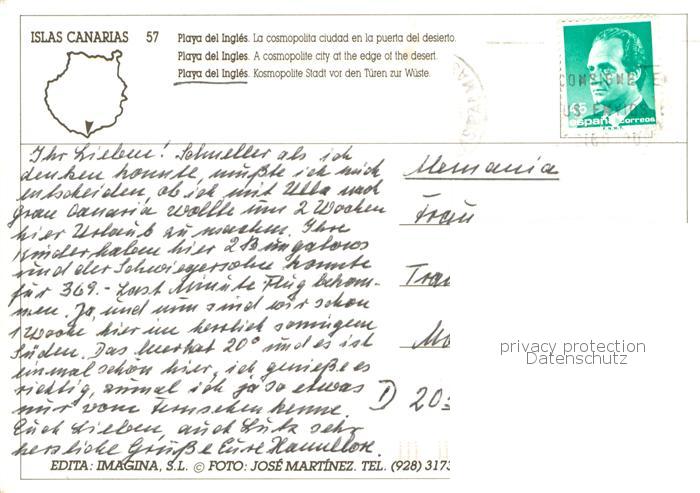 ISLAS CANARIAS 57
Playa del Inglés. La cosmopolita ciudad en la puerta del desierto.
Playa del Ingles. A cosmopolite city at the edge of the desert.
Playa del Ingles. Kosmopolite Stadt vor den Türen zur Wüste.
45
españa correos
CONSIGNE
Ihr Lieben! Schneller als ich
denken konnte, mußte ich mich
entscheiden, ob ich mit Ulla nach
gran Canaria wollte um 2 Wochen
hier Urlaub zu machen. Ihre
Kinder haben hier 2 Bungalows
und der Schwiegersohn konnte
für 369.- Last Minute Flug bekom-
men. Ja, und nun sind wir schon
1 Woche hier im herrlich sonnigen
Süden. Das Meer hat 20° und es ist
einmal schön hier, ich genieße es
richtig, zumal ich ja so etwas
nur vom Fernsehen kenne.
Euch Lieben, auch Lutz sehr
herzliche Grüße Eure Hannelore.
Alemania
Frau
Trau
Mo
D 20
privacy protection
Datenschutz
EDITA: IMAGINA, S.L. © FOTO: JOSÉ MARTÍNEZ. TEL. (928) 3173